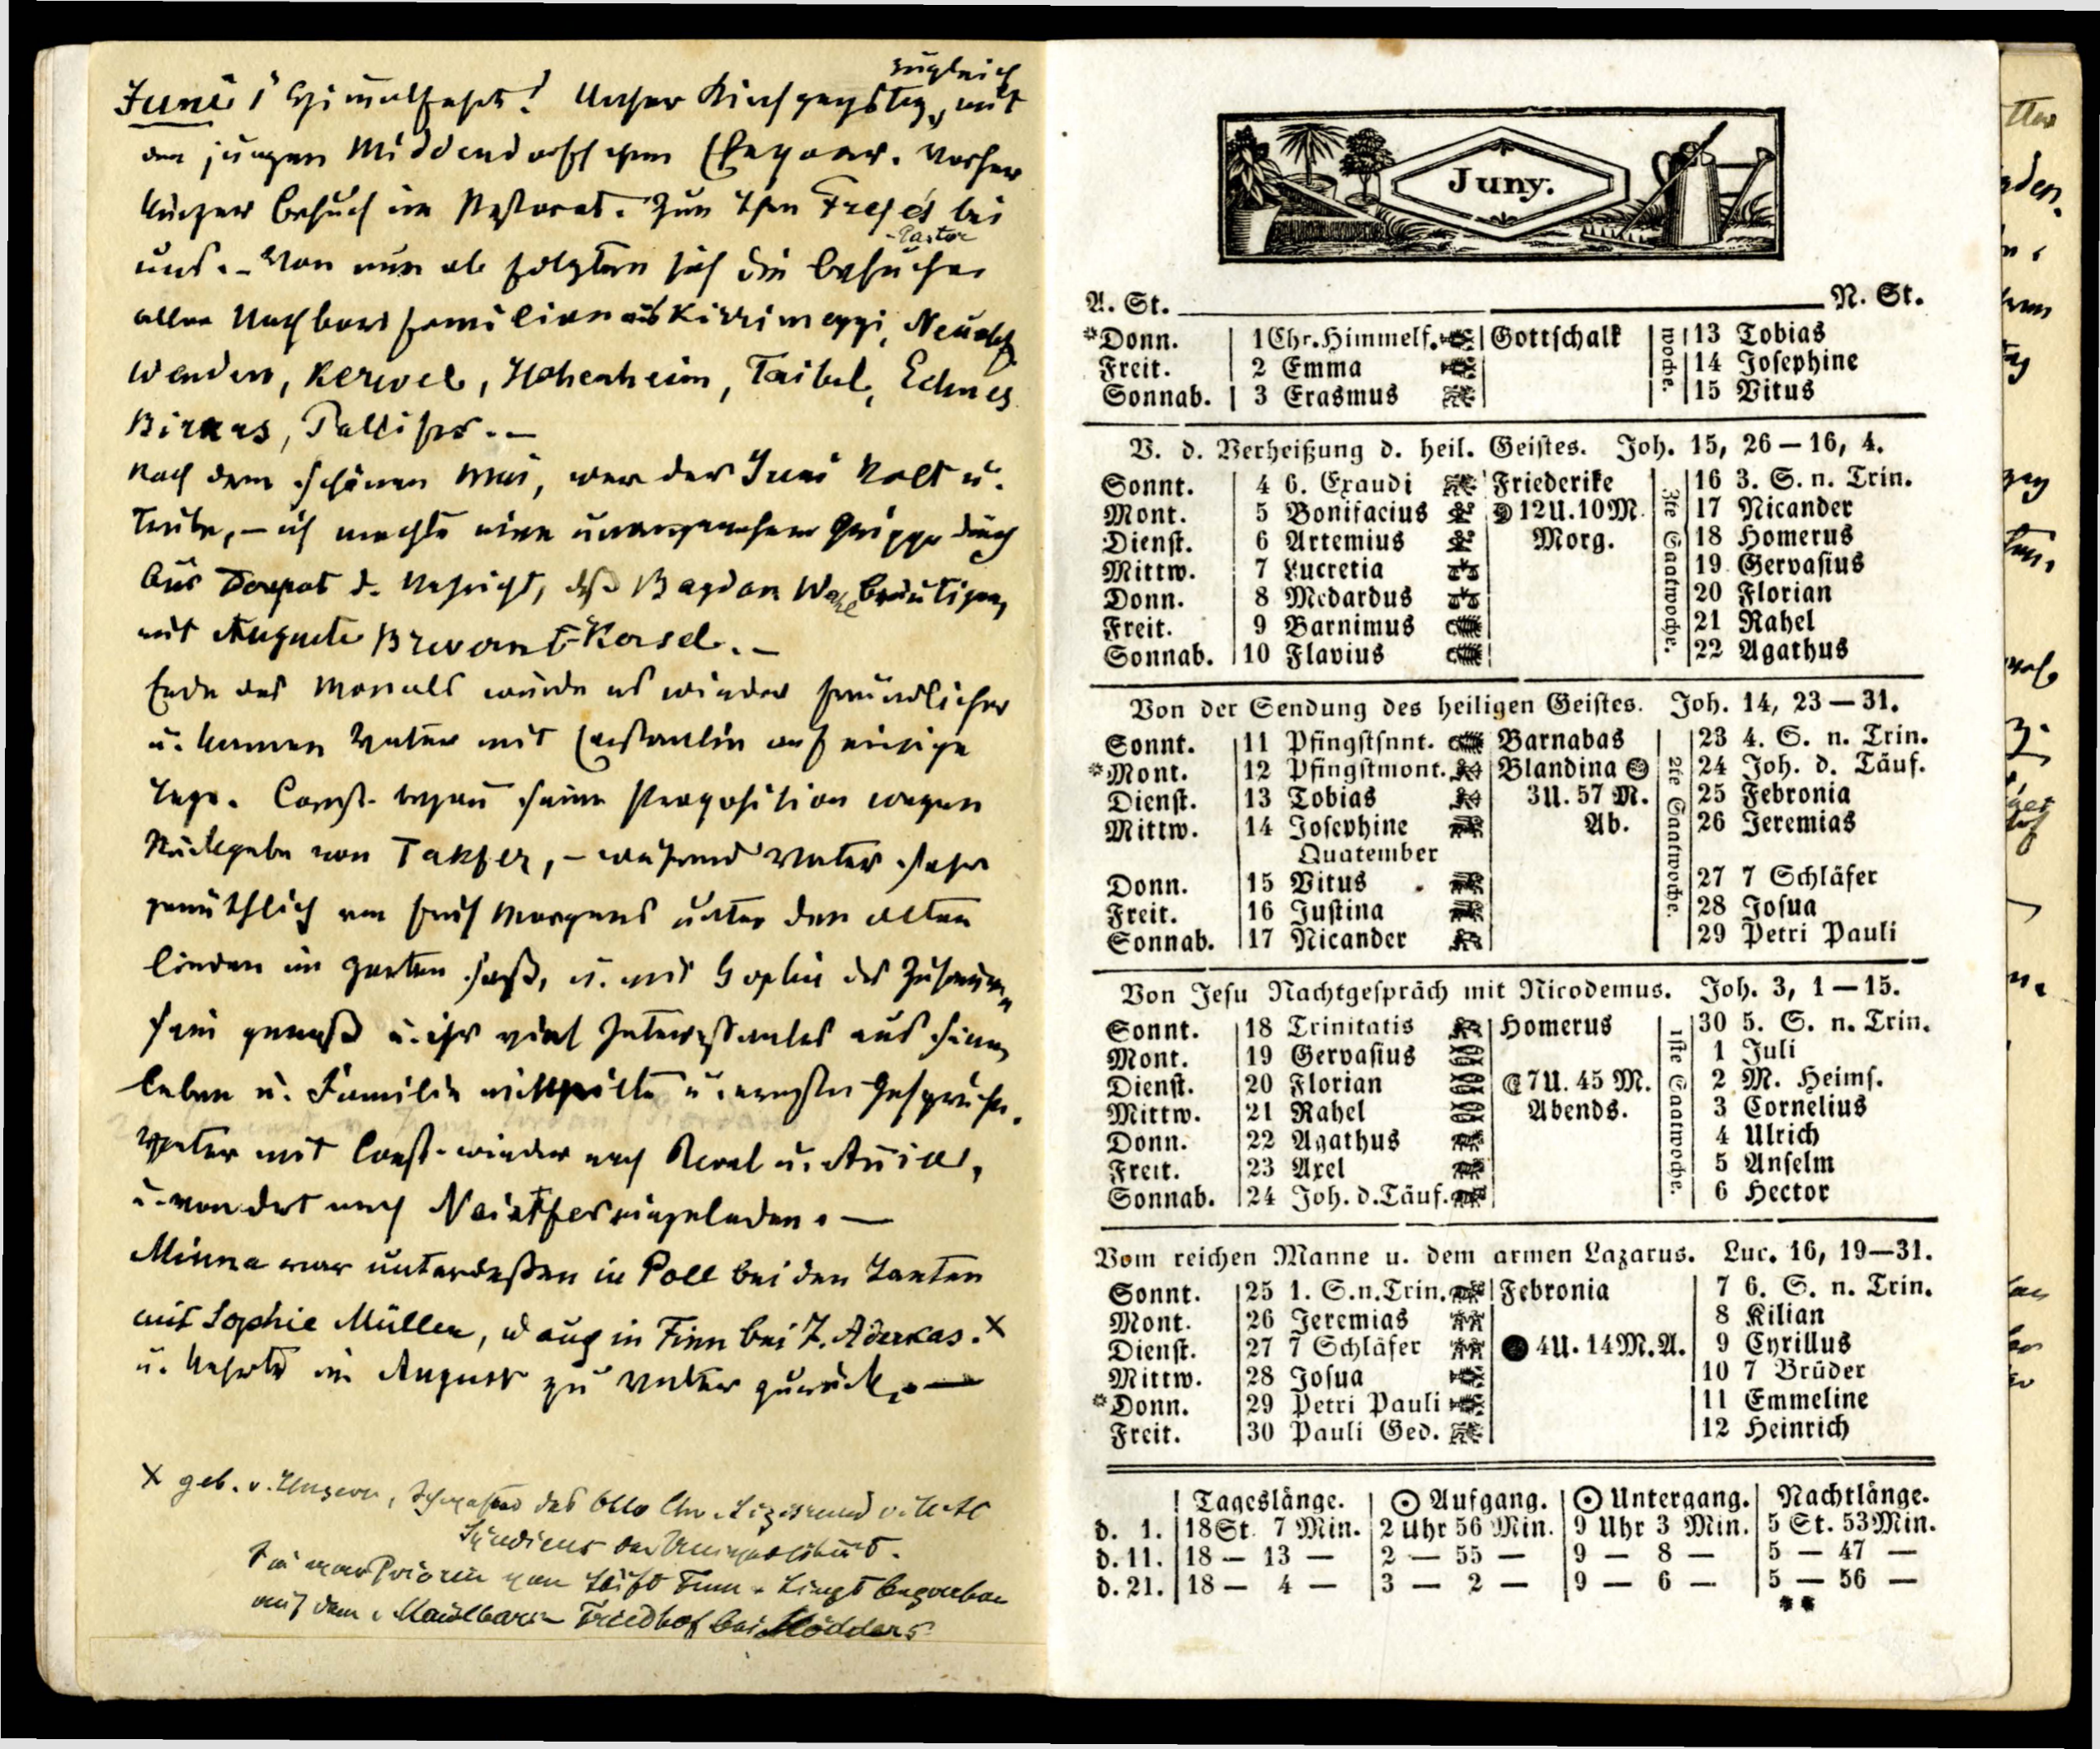 zugleich
Juni 1 Himmelfahrt! Unser Kirchgangstag, mit
den jungen Middendorffschen Ehepaar. Vorher
kurzer Besuch im Pastorat. Zum Thee Freyes bei
Pastor
uns. – Von nun ab folgten sich die Besucher
aller Nachbarsfamilien aus Kirrimeggi, Neuen
Wenden, Kerwel, Hohenheim, Taibel, Echmes
Birkas, Pallifer. –
Nach dem schönen Mai, war der Juni kalt u.
trübe, – ich machte eine unangenehme Grippe durch
Aus Dorpat d. Nachricht, daß Bagdan Wahl Bräutigam,
mit Auguste Brevern-Kosch. –
Ende des Monats wurde es wieder freundlicher
u. kamen Vater mit Constantin auf einige
Tage. Const. begann seine Proposition wegen
Rückgabe von Takfer, – während Vater sehr
gemüthlich am früh Morgens unter den alten
Linden im Garten saß, u. mit Sophie das Zusammen
sein genoß u. ihr viel Interessantes aus seinem
Leben u. Familie mittheilte u. ernste Gespräche.
Vater mit Const. wieder nach Reval u.
u. von dort nach Noistfer eingeladen. —
Minna war unterdeßen in Poll bei den Tanten
mit Sophie Müller, u auch in Finn bei J. Aderkas. x
u. kehrte im August zu Vater zurück. —
x geb. v. Ungern, des Otto Chr.
Syndicus der Universität.
Sie war Priorin von Stift Finn. Liegt begraben
auf dem Friedhof bei Mödders
Juny.
A. St. N. St.
*Donn. 1 Chr. Himmelf. Gottschalk 13 Tobias
Freit. 2 Emma 14 Josephine
Sonnab. 3 Erasmus 15 Vitus
woche.
V. d. Verheißung d. heil. Geistes. Joh. 15, 26 – 16, 4.
Sonnt. 4 6. Exaudi Friederike 16 3. S. n. Trin.
Mont. 5 Bonifacius 12U. 10M. 17 Nicander
Dienst. 6 Artemius Morg. 18 Homerus
Mittw. 7 Lucretia 19 Gervasius
Donn. 8 Medardus 20 Florian
Freit. 9 Barnimus 21 Rahel
Sonnab. 10 Flavius 22 Agathus
3te Saatwoche.
Von der Sendung des heiligen Geistes. Joh. 14, 23 – 31.
Sonnt. 11 Pfingstsnnt. Barnabas 23 4. S. n. Trin.
*Mont. 12 Pfingstmont. Blandina 24 Joh. d. Täuf.
Dienst. 13 Tobias 3U. 57 M. 25 Febronia
Mittw. 14 Josephine Ab. 26 Jeremias
Quatember
Donn. 15 Vitus 27 7 Schläfer
Freit. 16 Justina 28 Josua
Sonnab. 17 Nicander 29 Petri Pauli
2te Saatwoche.
Von Jesu Nachtgespräch mit Nicodemus. Joh. 3, 1 – 15.
Sonnt. 18 Trinitatis Homerus 30 5. S. n. Trin.
Mont. 19 Gervasius 1 Juli
Dienst. 20 Florian 7U. 45 M. 2 M. Heims.
Mittw. 21 Rahel Abends. 3 Cornelius
Donn. 22 Agathus 4 Ulrich
Freit. 23 Axel 5 Anselm
Sonnab. 24 Joh. d. Täuf. 6 Hector
1ste Saatwoche.
Vom reichen Manne u. dem armen Lazarus. Luc. 16, 19—31.
Sonnt. 25 1. S. n. Trin. Febronia 7 6. S. n. Trin.
Mont. 26 Jeremias 8 Kilian
Dienst. 27 7 Schläfer 4U. 14M. A. 9 Cyrillus
Mittw. 28 Josua 10 7 Brüder
*Donn. 29 Petri Pauli 11 Emmeline
Freit. 30 Pauli Ged. 12 Heinrich
Tageslänge. ☉ Aufgang. ☉ Untergang. Nachtlänge.
d. 1. 18St. 7 Min. 2 Uhr 56 Min. 9 Uhr 3 Min. 5 St. 53Min.
d. 11. 18 — 13 — 2 — 55 — 9 — 8 — 5 — 47 —
d. 21. 18 — 4 — 3 — 2 — 9 — 6 — 5 — 56 —
**